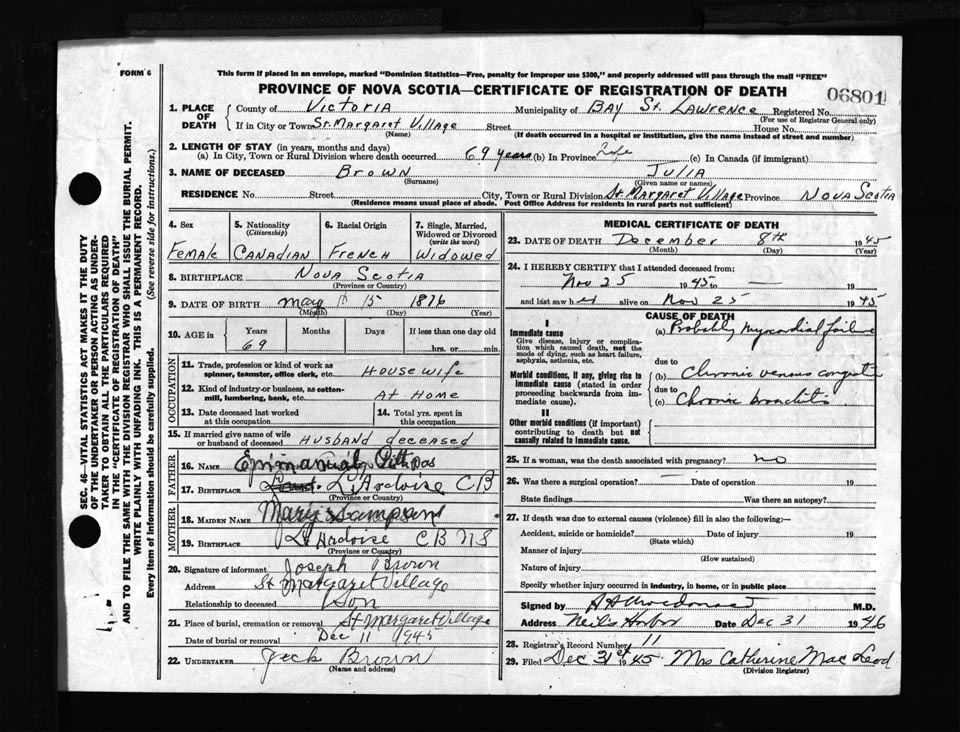 FORM 6
This form if placed in an envelope, marked "Dominion Statistics—Free, penalty for improper use $300," and properly addressed will pass through the mail "FREE"
PROVINCE OF NOVA SCOTIA—CERTIFICATE OF REGISTRATION OF DEATH
06801
1. PLACE OF DEATH
County of Victoria Municipality of Bay St. Lawrence Registered No.
(For use of Registrar General only)
If in City or Town St. Margaret Village Street House No.
(Name) (If death occurred in a hospital or institution, give the name instead of street and number)
2. LENGTH OF STAY (in years, months and days)
(a) In City, Town or Rural Division where death occurred 69 years (b) In Province Life (c) In Canada (if immigrant)
3. NAME OF DECEASED Brown Julia
(Surname) (Given name or names)
RESIDENCE No Street City, Town or Rural Division St. Margaret Village Province Nova Scotia
(Residence means usual place of abode. Post Office Address for residents in rural parts not sufficient)
4. Sex
Female
5. Nationality
(Citizenship)
Canadian
6. Racial Origin
French
7. Single, Married, Widowed or Divorced
(write the word)
Widowed
8. BIRTHPLACE Nova Scotia
(Province or Country)
9. DATE OF BIRTH May 15 1876
(Month) (Day) (Year)
10. AGE in
Years Months Days If less than one day old
69 hrs. or min.
OCCUPATION
11. Trade, profession or kind of work as spinner, teamster, office clerk, etc. Housewife
12. Kind of industry or business, as cotton-mill, lumbering, bank, etc. At Home
13. Date deceased last worked at this occupation
14. Total yrs. spent in this occupation
15. If married give name of wife or husband of deceased Husband deceased
FATHER
16. Name
17. Birthplace L'Ardoise CB
(Province or Country)
MOTHER
18. Maiden Name Mary Sampson
19. Birthplace L'Ardoise CB NS
(Province or Country)
20. Signature of informant Joseph Brown
Address St Margaret Village
Relationship to deceased Son
21. Place of burial, cremation or removal St Margaret Village
Date of burial or removal Dec 11 1945
22. UNDERTAKER Jack Brown
(Name and address)
MEDICAL CERTIFICATE OF DEATH
23. DATE OF DEATH December 8th 1945
(Month) (Day) (Year)
24. I HEREBY CERTIFY that I attended deceased from:
Nov 25 1945 to — 19
and last saw her alive on Nov 25 1945
CAUSE OF DEATH
I
Immediate cause
Give disease, injury or complication which caused death, not the mode of dying, such as heart failure, asphyxia, asthenia, etc.
(a) Probably myocardial failure
due to
Morbid conditions, if any, giving rise to immediate cause (stated in order proceeding backwards from immediate cause).
(b) Chronic venous
due to
(c) Chronic bronchitis
II
Other morbid conditions (if important) contributing to death but not causally related to immediate cause.
25. If a woman, was the death associated with pregnancy? no
26. Was there a surgical operation? — Date of operation 19
State findings Was there an autopsy?
27. If death was due to external causes (violence) fill in also the following:—
Accident, suicide or homicide? Date of injury 19
(State which)
Manner of injury
(How sustained)
Nature of injury
Specify whether injury occurred in industry, in home, or in public place
Signed by M.D.
Address Neil's Harbor Date Dec 31 1946
28. Registrar's Record Number 11
29. Filed Dec 31st 1945 Mrs Catherine MacLeod
(Division Registrar)
SEC. 46—VITAL STATISTICS ACT MAKES IT THE DUTY
OF THE UNDERTAKER OR PERSON ACTING AS UNDER-
TAKER TO OBTAIN ALL THE PARTICULARS REQUIRED
IN THE "CERTIFICATE OF REGISTRATION OF DEATH"
AND TO FILE THE SAME WITH THE DIVISION REGISTRAR WHO SHALL ISSUE THE BURIAL PERMIT.
WRITE PLAINLY WITH UNFADING INK. THIS IS A PERMANENT RECORD.
Every item of Information should be carefully supplied. (See reverse side for instructions.)